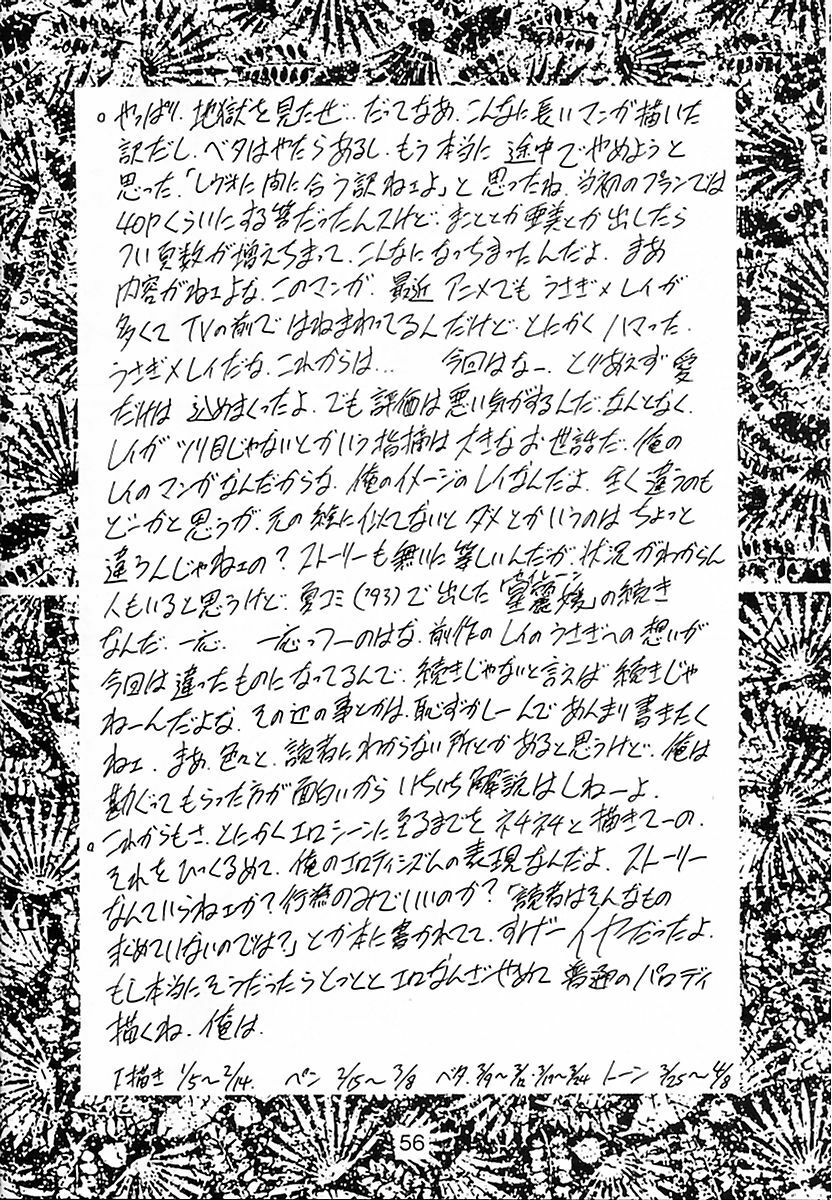 ○やっぱり、地獄を見たぜ‥だってなあ、こんなに長いマンガ描いた
訳だし、ベタはやたらあるし、もう本当に途中でやめようと
思った。「レヴォに間に合う訳ねェよ」と思ったね。当初のプランでは
40Pくらいにする筈だったんスけど、まこととか亜美とか出したら
つい頁数が増えちまって、こんなになっちまったんだよ。まあ
内容がねェよな、このマンガ。最近アニメでもうさぎ×レイが
多くてTVの前ではねまわってるんだけど、とにかくハマった。
うさぎ×レイだな、これからは… 今回はなー、とりあえず愛
だけは込めまくったよ。でも評価は悪い気がするんだ、なんとなく。
レイがツリ目じゃないとかいう指摘は大きなお世話だ。俺の
レイのマンガなんだからな。俺のイメージのレイなんだよ。全く違うのも
どーかと思うが、元の絵に似てないとダメとかいうのはちょっと
違うんじゃねェの?ストーリーも無いに等しいんだが、状況がわからん
人もいると思うけど、夏コミ('93)で出した「麗媛」の続き
なんだ、一応。 一応っつーのはな、前作のレイのうさぎへの想いが
今回は違ったものになってるんで、続きじゃないと言えば続きじゃ
ねーんだよな。その辺の事とかは、恥ずかしーんであんまり書きたく
ねェ。まあ、色々と、読者にわからない所とかあると思うけど、俺は
勘ぐってもらった方が面白いからいちいち解説はしねーよ。
○これからもさ、とにかくエロシーンに至るまでをネチネチと描きてーの。
それをひっくるめて、俺のエロティシズムの表現なんだよ。ストーリー
なんていらねェか?行為のみでいいのか?「読者はそんなもの
求めていないのでは?」とか本に書かれてて、すげーイヤだったよ。
もし本当にそうだったらとっととエロなんざやめて普通のパロディ
描くね、俺は。
下描き 1/5〜2/14. ペン 2/15〜3/8 ベタ. 3/9〜3/12・3/17〜3/24 トーン 3/25〜4/8
56